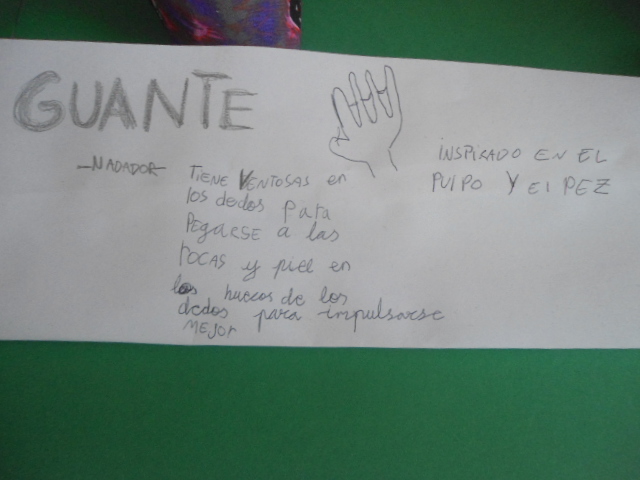 GUANTE
-NADADOR-
TIENE VENTOSAS en
los dedos para
PEGARSE a las
rocas y piel en
los huecos de los
dedos para impulsarse
MEJOr
INSPIRADO EN EL
PULPO Y El PEZ